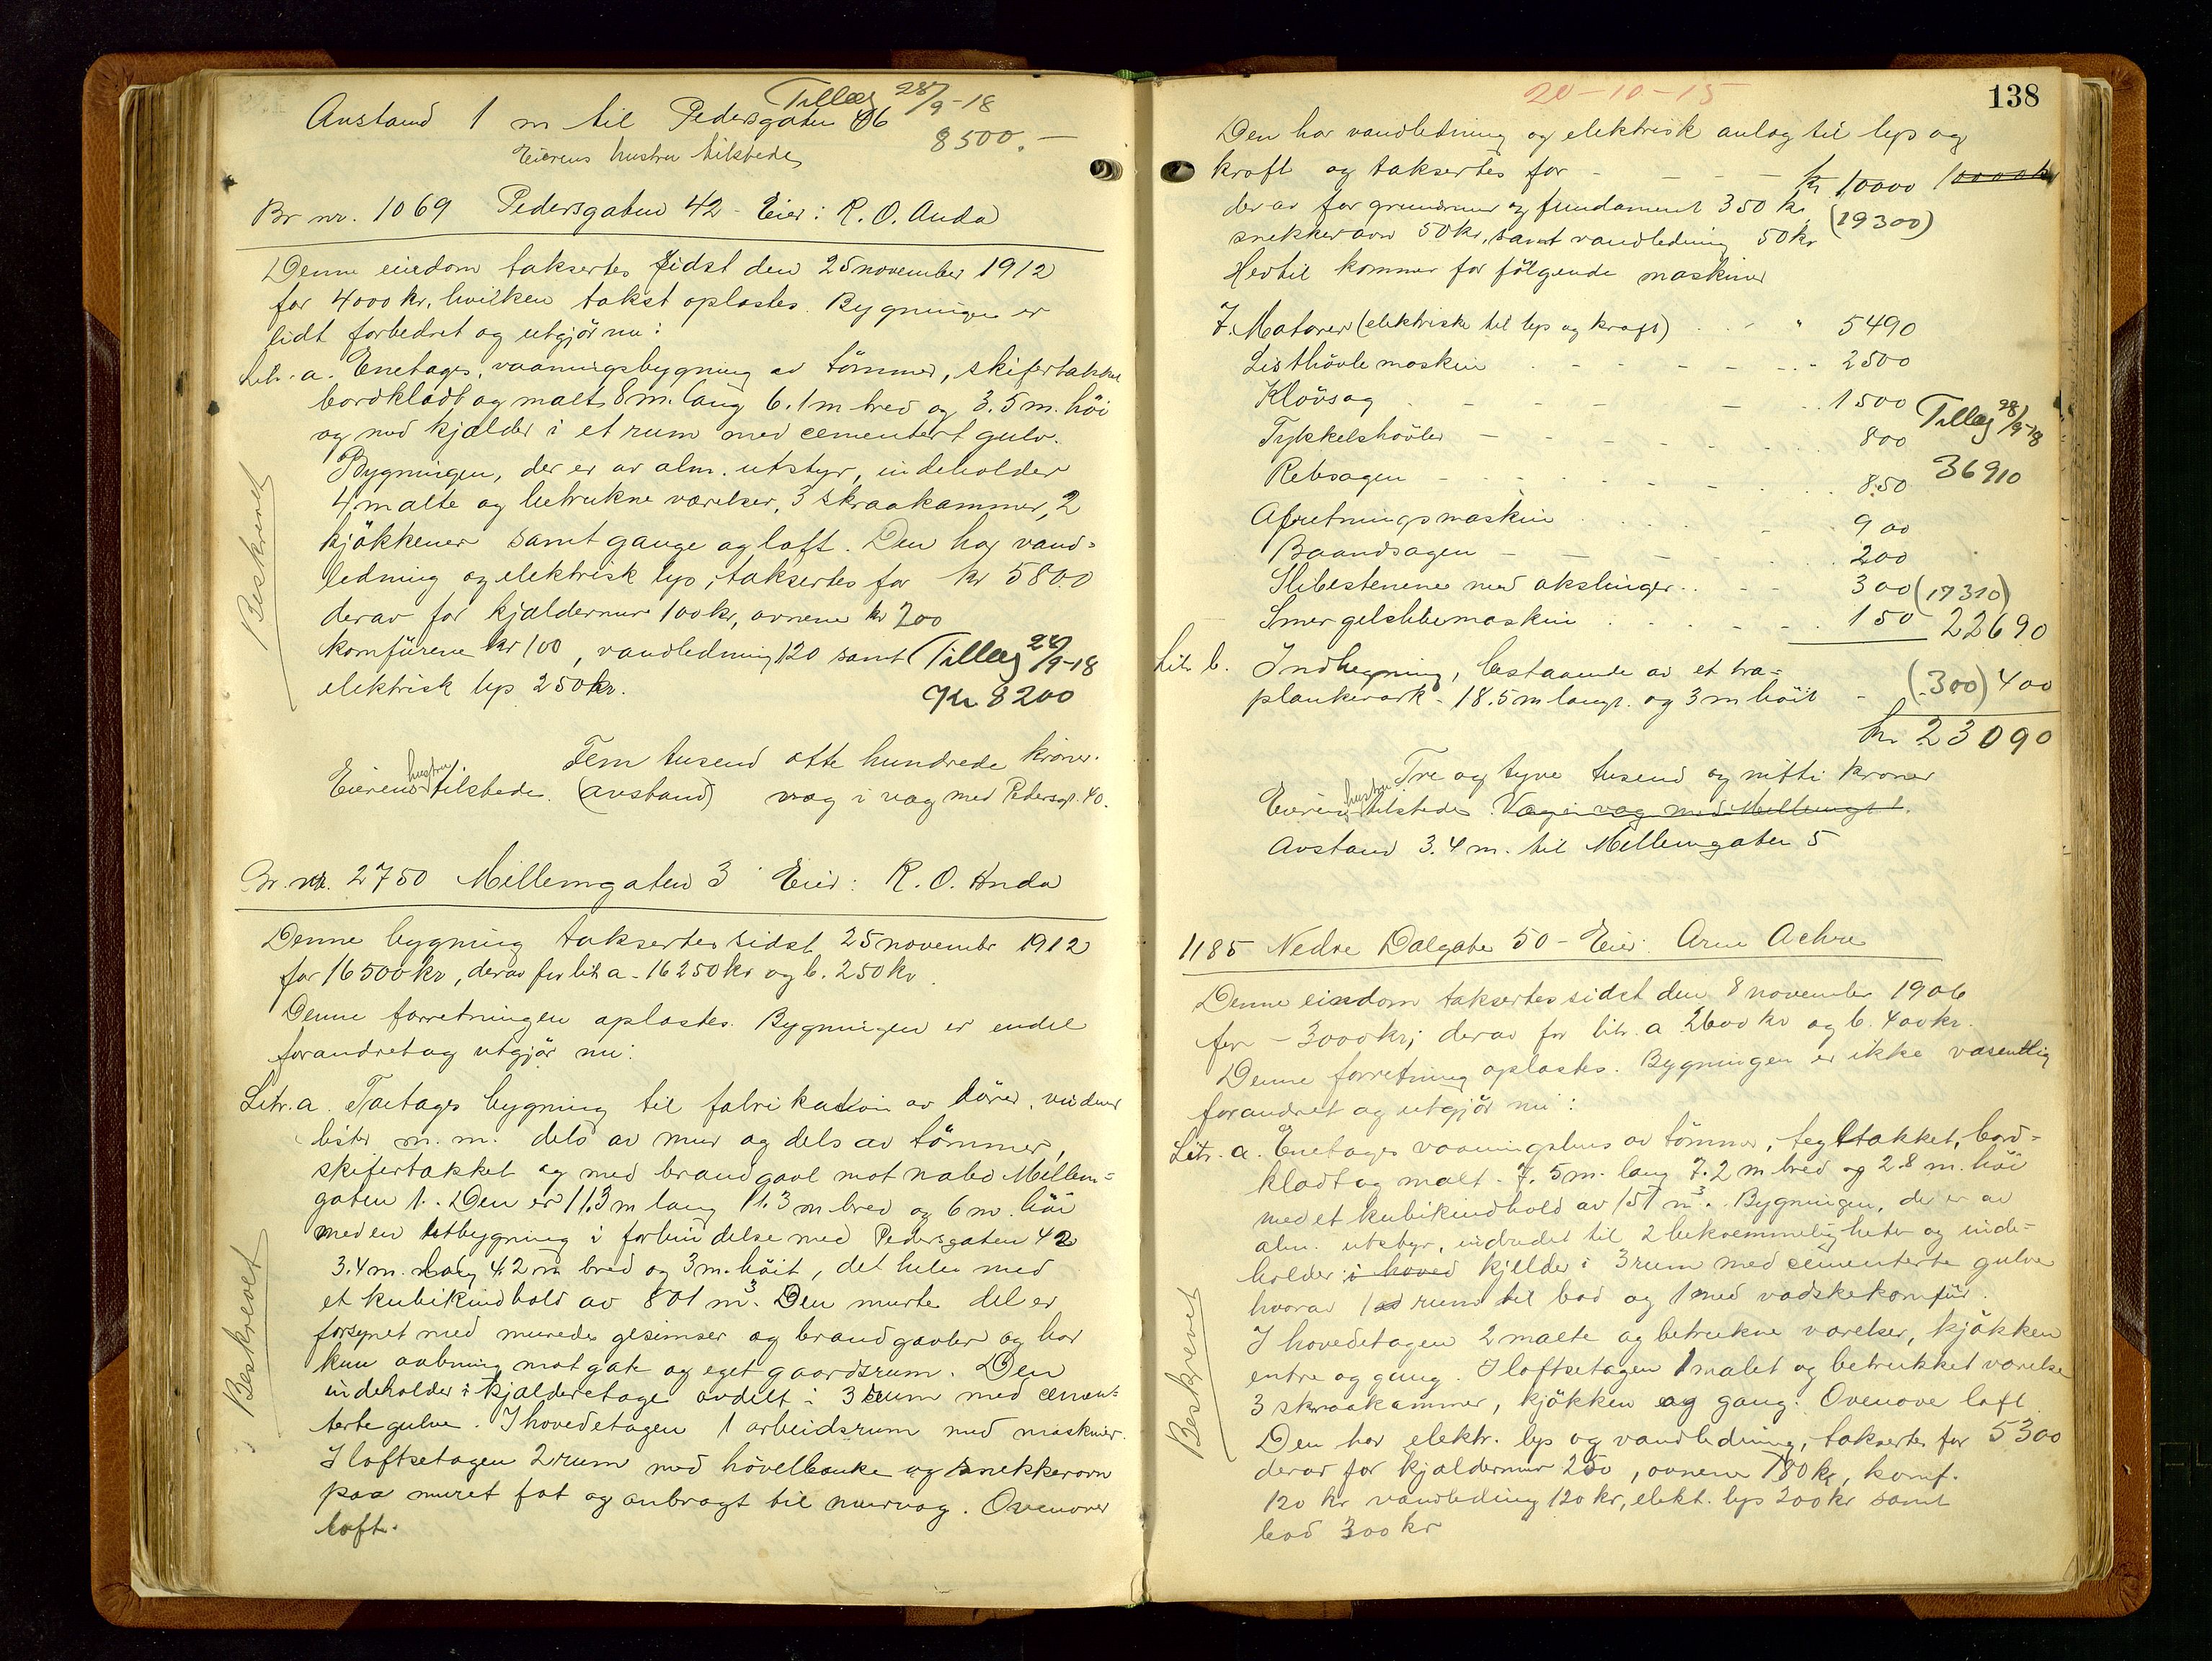 Tillæg 28/9-18
Avstand 1 m til Pedersgaten 36
8500.-
Eierens hustru tilstede
Br nr. 1069 Pedersgaten 42 - Eier: R. O. Anda
Denne eiedom taksertes sidst den 25 november 1912
for 4000 kr, hvilken takst oplæstes. Bygningen er
lidt forbedret og utgjör nu:
Litr. a. Enetages, vaaningsbygning av tömmer, skifertakket
bordklædt og malt 8 m. lang 6.1 m bred og 3.5 m. höi
og med kjælder i et rum med cementert gulv.
Bygningen, der er av alm. utstyr, indeholder
4 malte og betrukne værelser, 3 skraakammer, 2
kjökkener samt gange og loft. Den har vand=
ledning og elektrisk lys, taksertes for kr 5800
derav for kjældermur 100 kr, ovnene kr 200
komfürene kr 100, vandledning 120 samt
elektrisk lys 250 kr.
Tillæg 28/9-18
Kr 8200
Beskrevet
Fem tusend otte hundrede kroner.
Eierens hustru tilstede. (avstand) væg i væg med Pedersgt. 40.
Br. nr. 2750 Mellemgaten 3 Eier: R. O. Anda
Denne bygning taksertes sidst 25 november 1912
for 16500 kr, derav for lit a - 16250 kr og b. 250 kr.
Denne forretningen oplæstes. Bygningen er endel
forandret og utgjör nu:
Litr. a. Toetages bygning til fabrikation av dörer, vinduer
lister m. m. dels av mur og dels av tömmer,
skifertakket og med brandgavl mot nabo Mellem=
gaten 1. Den er 11.3 m lang 11.3 m bred og 6 m. höi
med en utbygning i forbindelse med Pedersgaten 42
3.4 m. lang 4.2 m bred og 3 m. höit, det hele med
et kubikindhold av 801 m³. Den murte del er
forsynet med murede gesimser og brandgavler og har
kun aabning mot gate og eget gaardsrum. Den
indeholder i kjælderetage avdelt i 3 rum med cemen=
terte gulve. I hovedetagen 1 arbeidsrum med maskiner.
I loftsetagen 2 rum med hövelbænke og snekkerovn
paa muret fot og anbragt til murvæg. Ovenover
loft.
Beskrevet
20-10-15
138
Den har vandledning og elektrisk anlæg til lys og
kraft og taksertes for - - - - kr 10000 10000 kr
derav for grundmur og fundament 350 kr, (19300)
snekkerovn 50 kr, samt vandledning 50 kr
Hertil kommer for fölgende maskiner
7. Motorer (elektriske til lys og kraft) 5490
Listhövle maskin 2500
Klövsag 1500
Tillæg 28/9-18
Tykkelshövler 800
Rebsagen 850 36910
Afretningsmaskin 900
Baandsagen 200
Slibestenene med akslinger 300 (17310)
Smergelslibemaskin 150 22690
Litr b. Indhegning, bestaaende av et træ=
plankeværk - 18.5 m langt. og 3 m höit - (300) 400
kr 23090
Tre og tyve tusend og nitti kroner
Eierens hustru tilstede. Væg i væg med Mellemgt 1.
Avstand 3.4 m. til Mellemgaten 5
1185 Nedre Dalgate 50 - Eier: Arne
Denne eiendom taksertes sidst den 8 november 1906
for - 3000 kr; derav for litr. a 2600 kr og b. 400 kr.
Denne forretning oplæstes. Bygningen er ikke væsentlig
forandret og utgjör nu:
Litr. a. Enetages vaaningshus av tömmer, tegltakket, bord=
klædt og malt. 7.5 m. lang 7.2 m bred og 2.8 m. höi
med et kubikindhold av 151 m³. Bygningen, der er av
alm. utstyr, indredet til 2 bekvemmeligheter og inde=
holder: i hoved kjelder i 3 rum med cementerte gulve
hvorav 1 rum til bad og 1 med vadskekomfür.
I hovedetagen 2 malte og betrukne værelser, kjökken
entre og gang. I loftsetagen 1 malet og betrukket værelse
3 skraakammer, kjökken og gang. Ovenover loft.
Den har elektr. lys og vandledning, taksertes for 5300
derav for kjældermur 250, ovnene 180 kr, komf.
120 kr vandledning 120 kr, elekt. lys 200 kr samt
bad 300 kr
Beskrevet